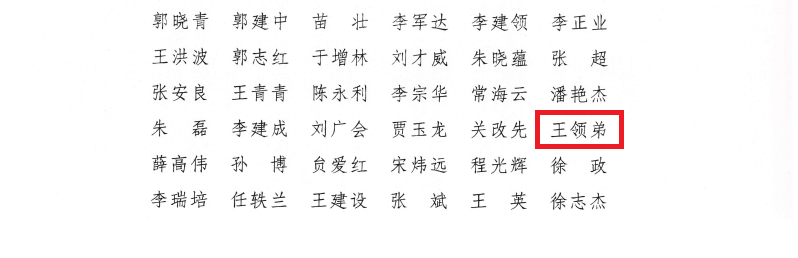 郭晓青 郭建中 苗 壮 李军达 李建领 李正业
王洪波 郭志红 于增林 刘才威 朱晓蕴 张 超
张安良 王青青 陈永利 李宗华 常海云 潘艳杰
朱 磊 李建成 刘广会 贾玉龙 关改先 王领弟
薛高伟 孙 博 贠爱红 宋炜远 程光辉 徐 政
李瑞培 任轶兰 王建设 张 斌 王 英 徐志杰